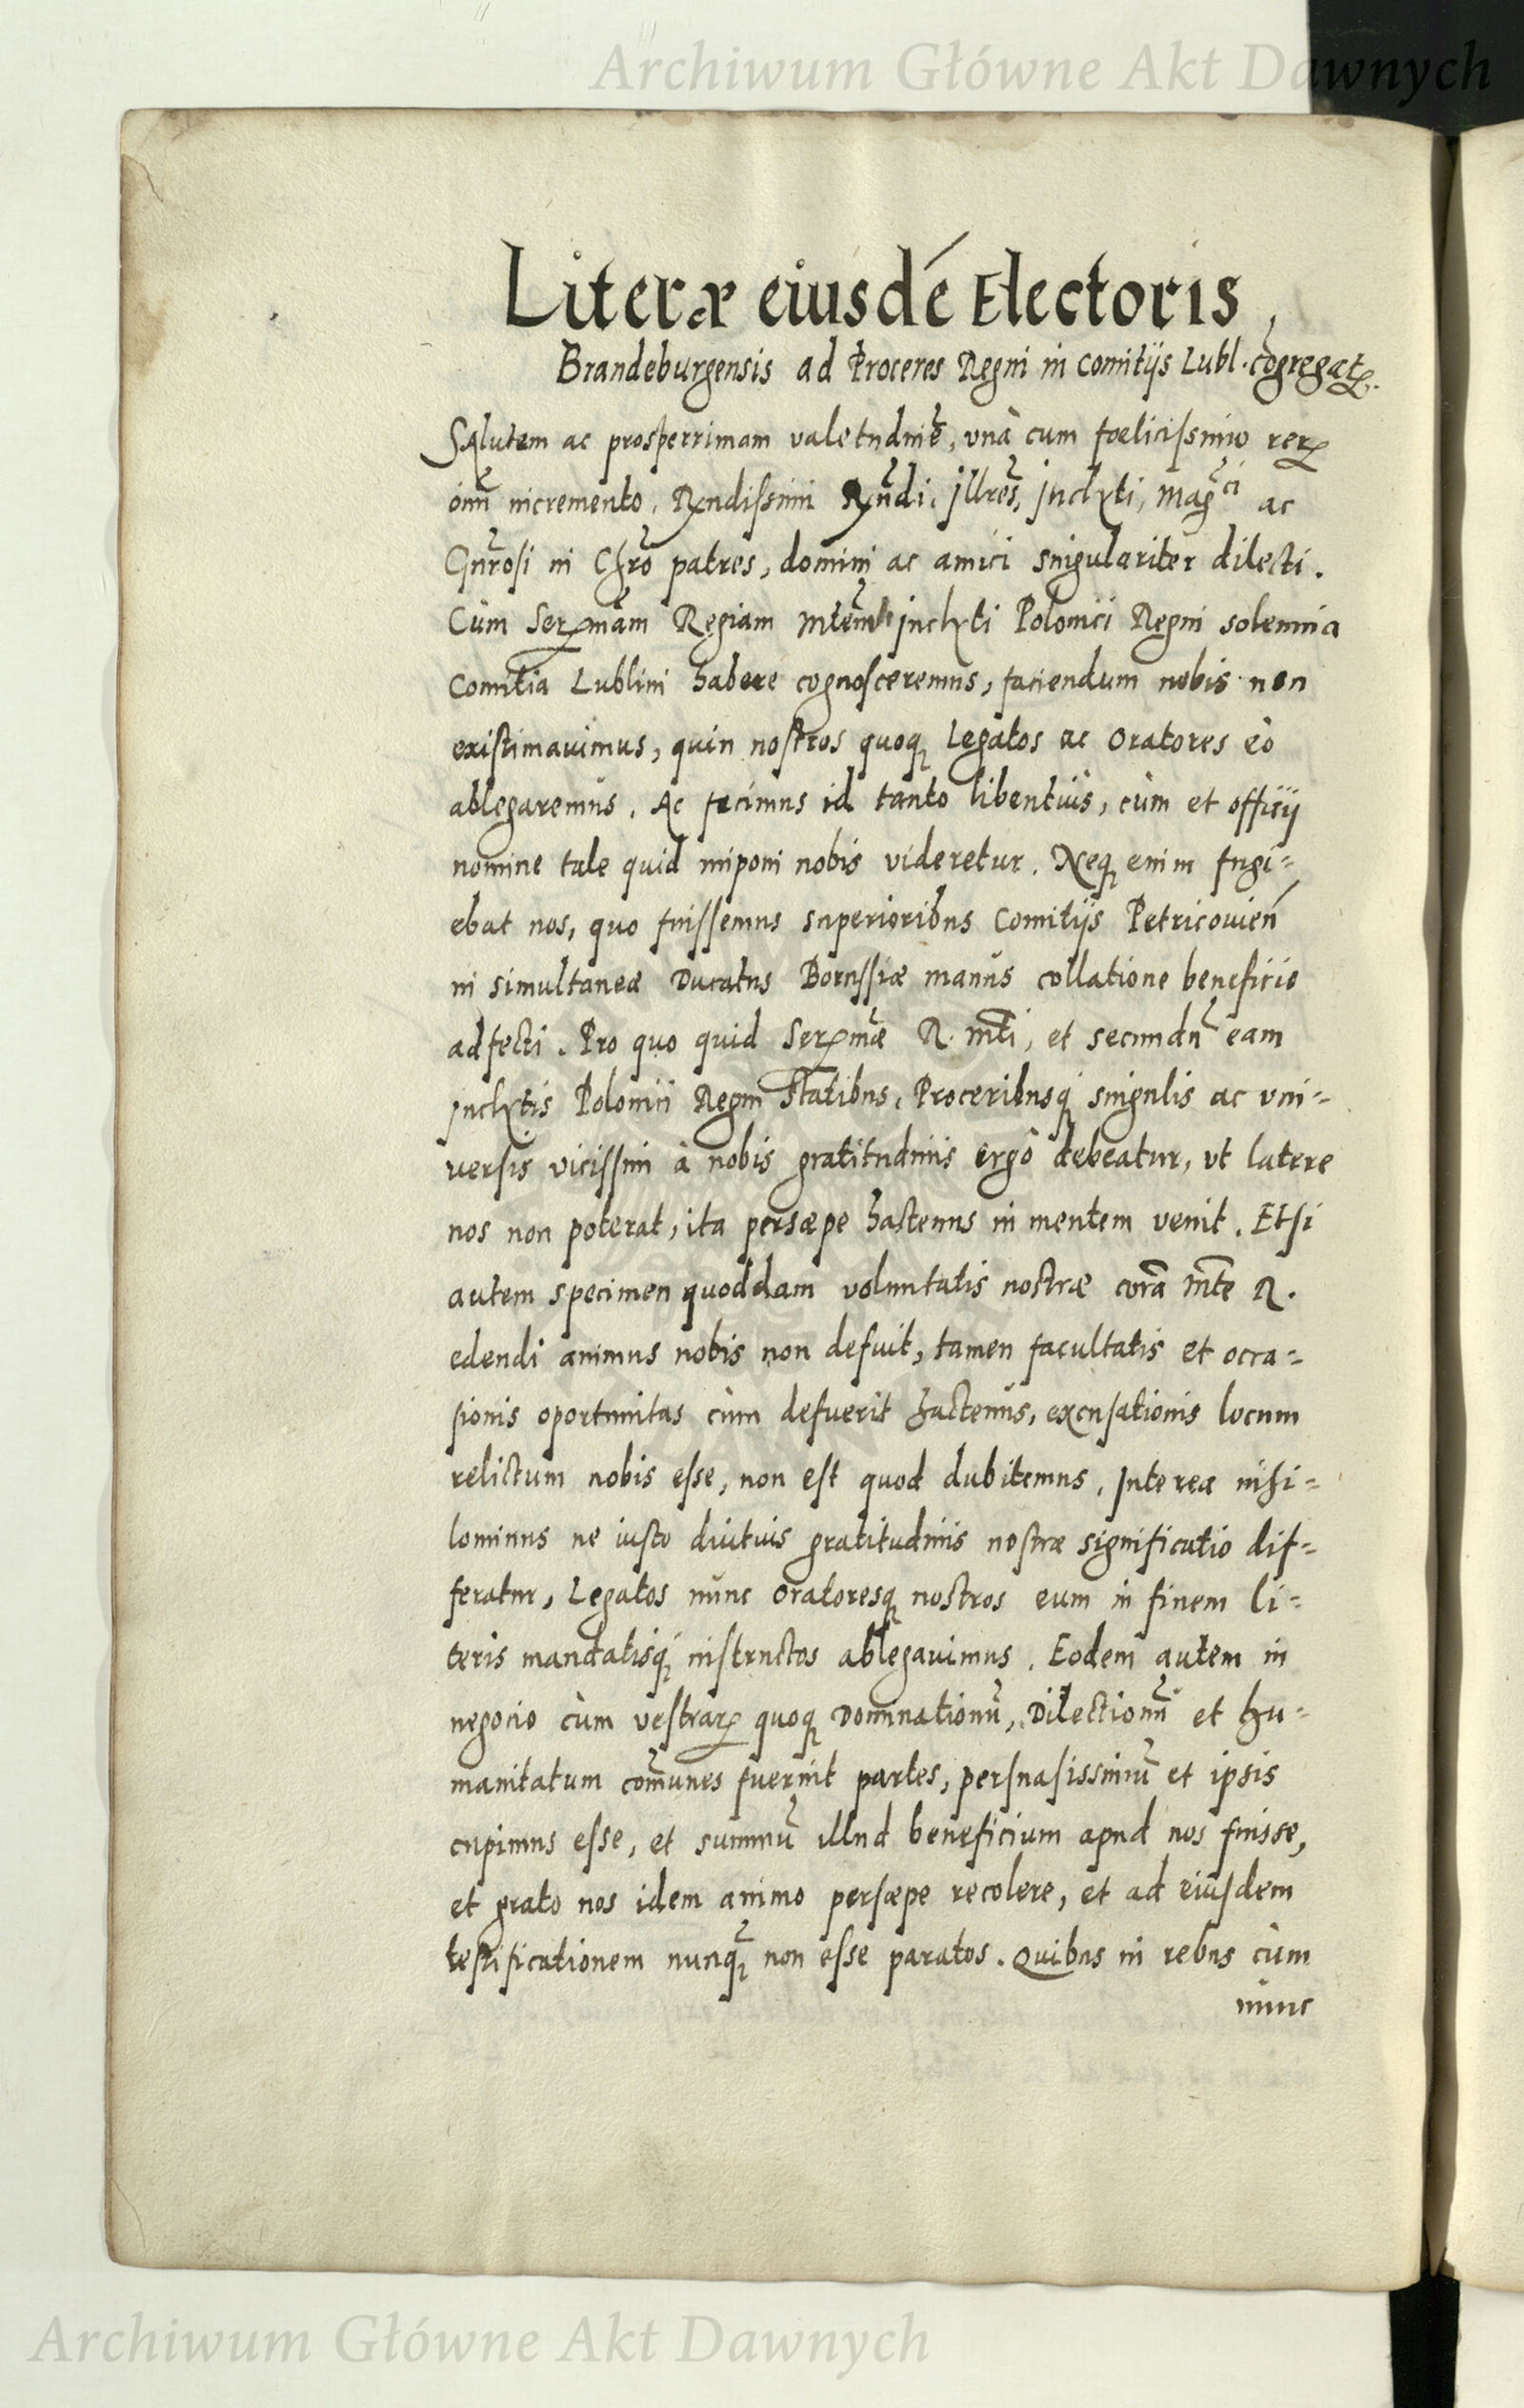 Archiwum Główne Akt Dawnych
Literæ eiusdē Electoris
Brandeburgensis ad Proceres Regni in Comitijs Lubl. cōgregatꝝ.
SAlutem ac prosperrimam valetudinē, vnà cum fœlicissimo rerꝝ
oım̄ incremento. Rx̄ndissimi Rx̄ndi, Jllres̄, Jnclyti, Maḡci ac
Gnr̄osi in Chr̄o patres, domini ac amici singulariter dilecti.
Cùm Serx̄mām Regiam Mtēm jnclyti Polonici Regni solennia
Comitia Lublini habere cognosceremus, faciendum nobis non
existimauimus, quin nostros quoqꝫ Legatos ac Oratores eò
ablegaremus. Ac fecimus id tanto libentiùs, cùm et officij
nomine tale quid imponi nobis videretur. Neqꝫ enim fugi-
ebat nos, quo fuissemus superioribus Comitijs Petricouien̄
in simultanea Ducatus Borussiæ manûs collatione beneficio
adfecti. Pro quo quid Serx̄mæ R. Mt̄i, et secundū eam
jnclytis Polonici Regni Statibus, Proceribusqꝫ singulis ac vni-
uersis vicissim à nobis gratitudinis ergò debeatur, vt latere
nos non poterat, ita persæpe hactenus in mentem venit. Etsi
autem specimen quoddam voluntatis nostræ corā Mt̄e R.
edendi animus nobis non defuit, tamen facultatis et occa-
sionis oportunitas cùm defuerit hactenùs, excusationis locum
relictum nobis esse, non est quod dubitemus. Interea nihi-
lominus ne iusto diutius gratitudinis nostræ significatio dif-
feratur, Legatos nunc Oratoresqꝫ nostros eum in finem li-
teris mandatisqꝫ instructos ablegauimus. Eodem autem in
negocio cùm vestrarꝝ quoqꝫ Dominationū, Dilectionū et hu-
manitatum com̄unes fuerint partes, persuasissimū et ipsis
cupimus esse, et summū illud beneficium apud nos fuisse,
et grato nos idem animo persæpe recolere, et ad eiusdem
testificationem nunqꝫ̄ non esse paratos. Quibus in rebus cùm
nunc
Archiwum Główne Akt Dawnych